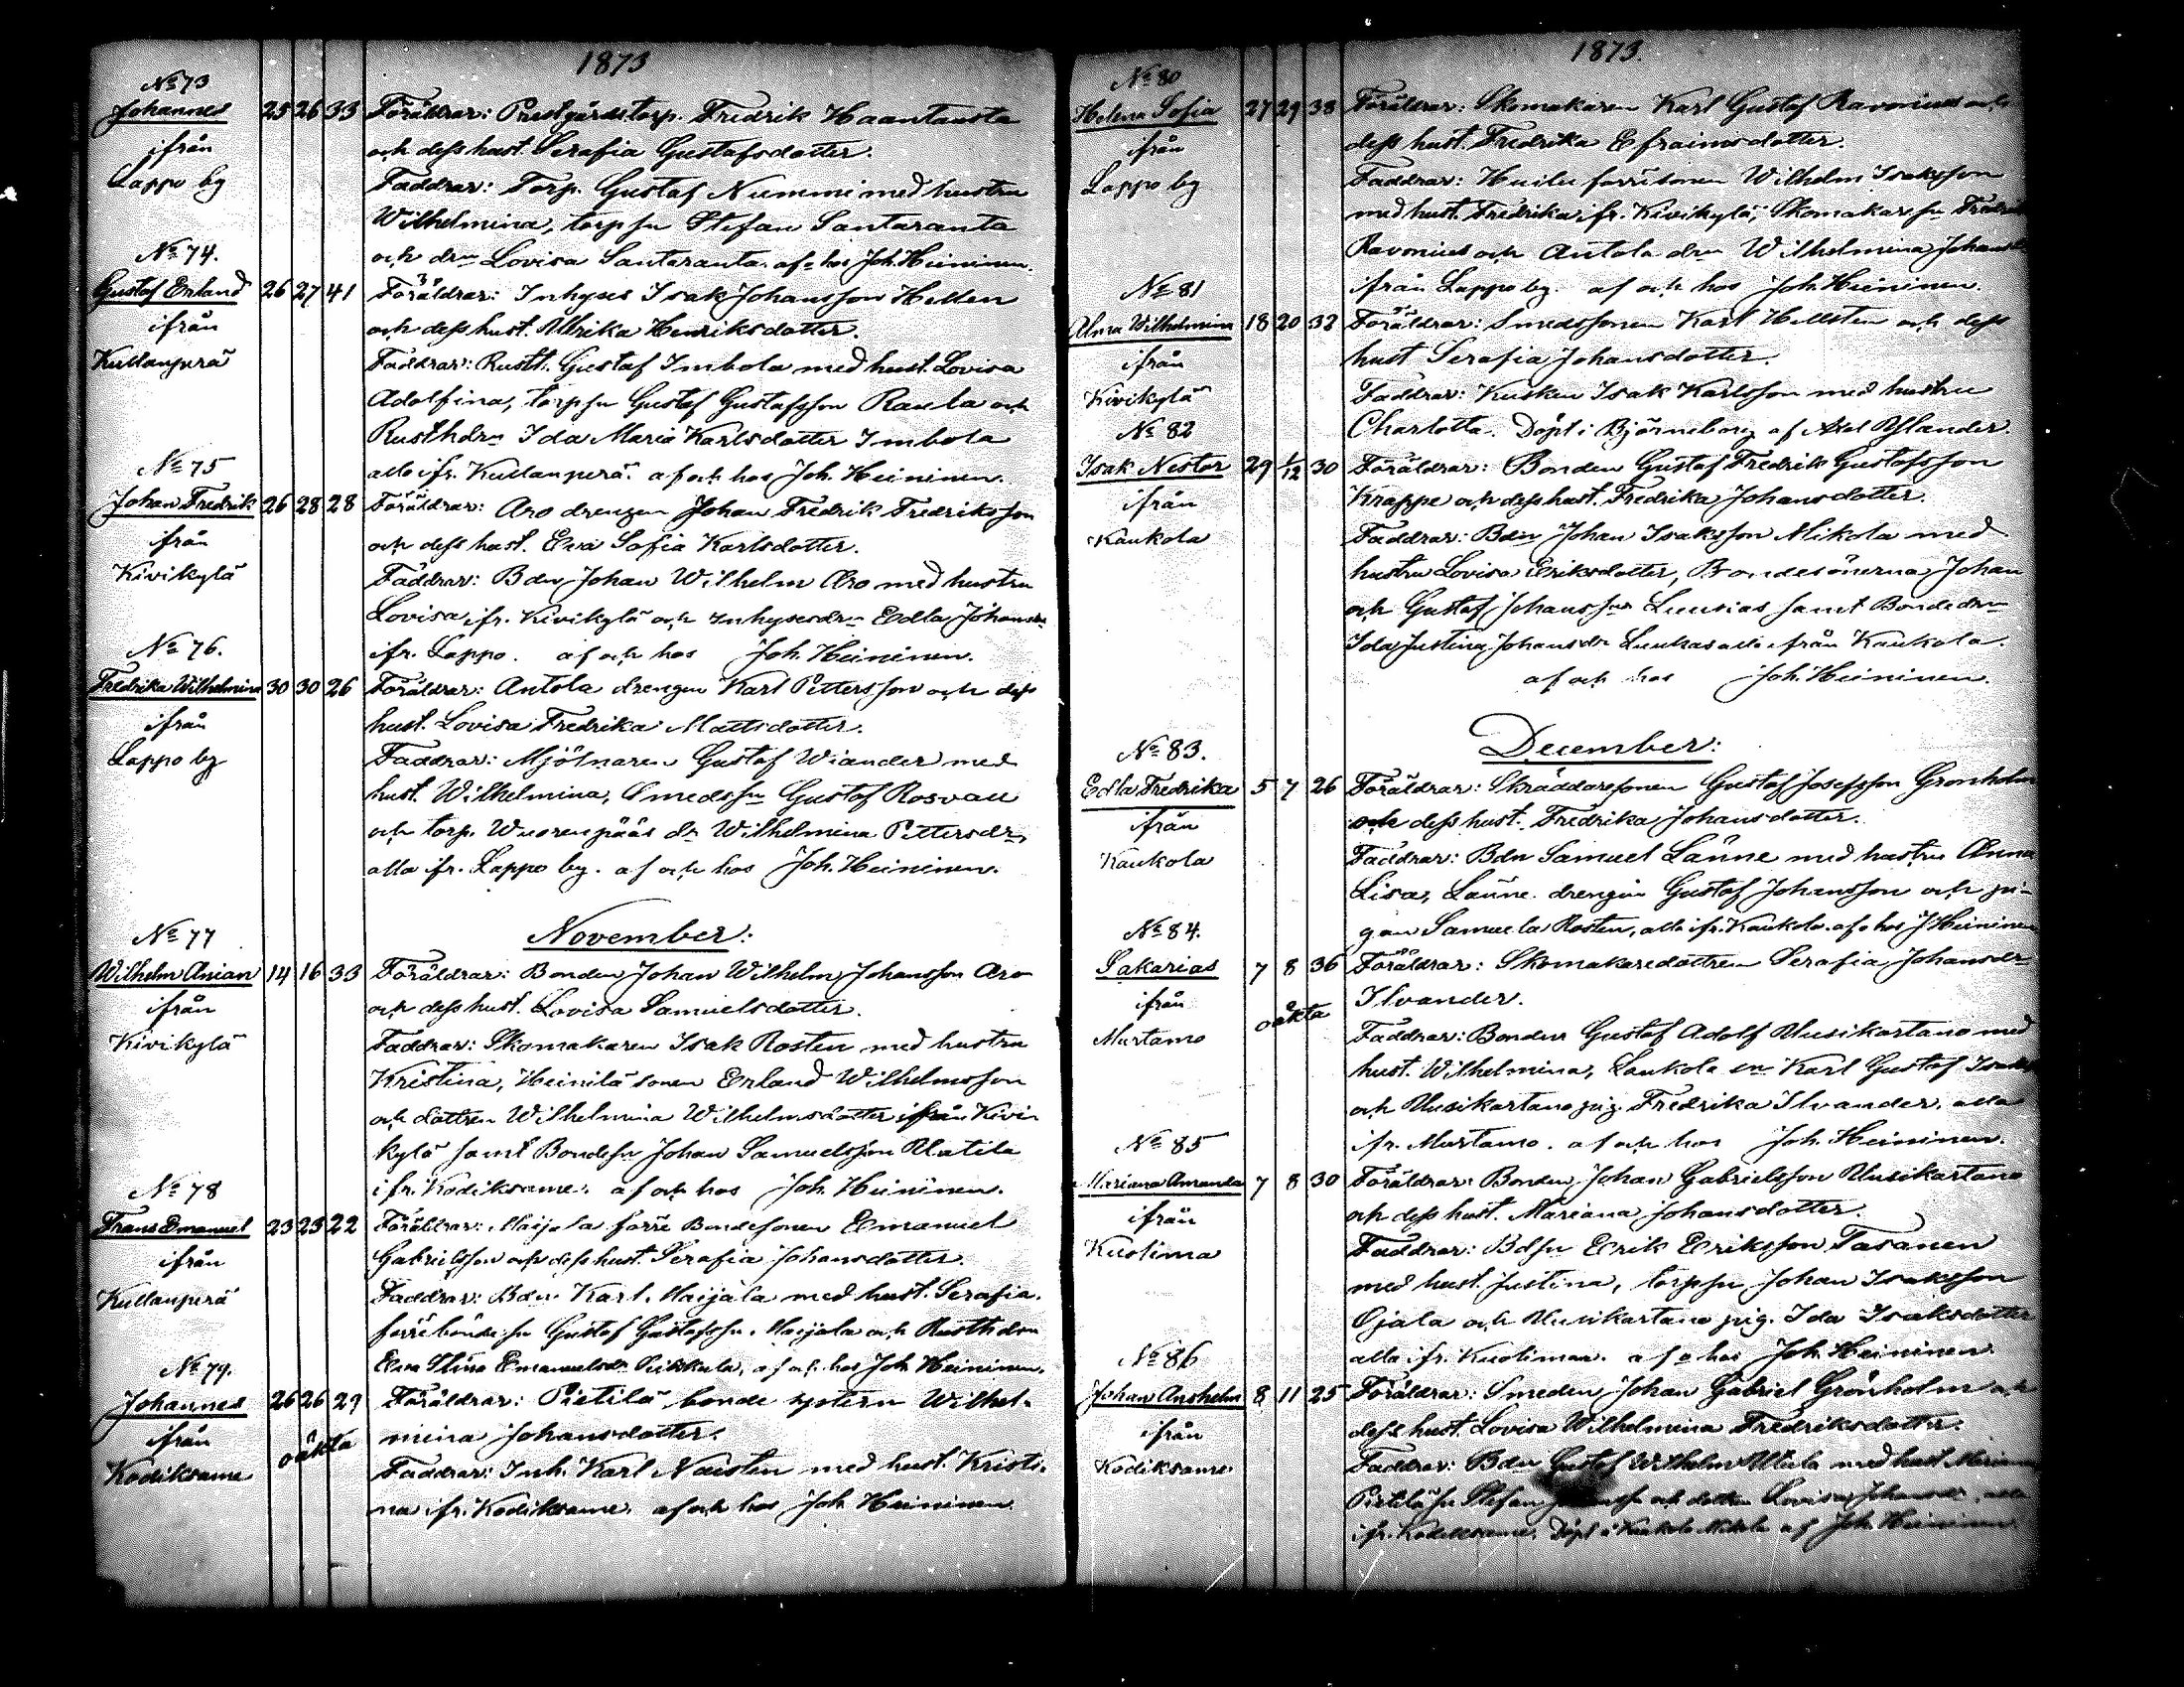 1873
No 73
Johannes 25 26 33 Föräldrar: Prestgårdstorp. Fredrik Haantausta
ifrån och dess hust. Serafia Gustafsdotter.
Lappo by Faddrar: Torp. Gustaf Nummi med hustru
Wilhelmina, torpsn Stefan Santaranta
och drn Lovisa Santaranta. af o hos Joh. Heininen.
No 74.
Gustaf Erland 26 27 41 Föräldrar: Inhyses Isak Johansson Hellen
ifrån och dess hust. Ulrika Henriksdotter.
Kullanperä Faddrar: Rustt. Gustaf Imbola med hust. Lovisa
Adolfina, torpsn Gustaf Gustafsson Raula och
Rusthdrn Ida Maria Karlsdotter Imbola
alla ifr. Kullanperä. af och hos Joh. Heininen.
No 75
Johan Fredrik 26 28 28 Föräldrar: Aro drengen Johan Fredrik Fredriksson
ifrån och dess hust. Eva Sofia Karlsdotter.
Kivikylä Faddrar: Bdn Johan Wilhelm Aro med hustru
Lovisa, ifr. Kivikylä och inhysesdrn Edla Johansdr
ifr. Lappo. af och hos Joh. Heininen.
No 76.
Fredrika Wilhelmina 30 30 26 Föräldrar: Antola drengen Karl Pettersson och dess
ifrån hust. Lovisa Fredrika Mattsdotter.
Lappo by Faddrar: Mjölnaren Gustaf Wiander med
hust. Wilhelmina, Smedssn Gustaf Rosvall
och torp. Wuorenpääs dr Wilhelmina Pettersdr,
alla ifr. Lappo by. af och hos Joh. Heininen.
November:
No 77
Wilhelm Anian 14 16 33 Föräldrar: Bonden Johan Wilhelm Johansson Aro
ifrån och dess hust. Lovisa Samuelsdotter.
Kivikylä Faddrar: Skomakaren Isak Rosten med hustru
Kristina, Heinilä sonen Erland Wilhelmsson
och dottren Wilhelmina Wilhelmsdotter ifrån Kivi-
kylä samt Bondesn Johan Samuelsson Ulatila
ifr. Kodiksame. af och hos Joh. Heininen.
No 78
Frans Emanuel 23 25 22 Föräldrar: Maijala förre Bondesonen Emanuel
ifrån Gabrielsson och dess hust. Serafia Johansdotter.
Kullanperä Faddrar: Bdn. Karl Maijala med hust. Serafia.
förre bondesn Gustaf Gustafssn. Maijala och Rusthdrn
Eva Stina Emanuelsdr Pikkula, af och hos Joh. Heininen.
No 79.
Johannes 26 26 29 Föräldrar: Pietilä bonde systern Wilhel-
ifrån oäkta mina Johansdotter.
Kodiksame Faddrar: Inh. Karl Naisten med hust. Kristi-
na ifr. Kodiksame. af och hos Joh. Heininen.
1873.
No 80
Helena Sofia 27 29 38 Föräldrar: Skomakaren Karl Gustaf Ravonius och
ifrån dess hust. Fredrika Efraimsdotter.
Lappo by Faddrar: Huilu förre sonen Wilhelm Isaksson
med hust. Fredrika ifr. Kivikylä, Skomakar sn Fredrik
Ravonius och Antola drn Wilhelmina Johansdr
ifrån Lappo by. af och hos Joh. Heininen.
No 81
Alma Wilhelmina 18 20 32 Föräldrar: Smedssonen Karl Hellsten och dess
ifrån hust Serafia Johansdotter.
Kivikylä Faddrar: Kusken Isak Karlsson med hustru
Charlotta. Döpt i Björneborg af Axel Rylander.
No 82
Isak Nestor 29 1/12 30 Föräldrar: Bonden Gustaf Fredrik Gustafsson
ifrån Krappe och dess hust. Fredrika Johansdotter.
Kaukola Faddrar: Bdn Johan Isaksson Mikola med
hustru Lovisa Eriksdotter, Bondesönerna Johan
och Gustaf Johanssnr Luukas samt Bondedrn
Ida Justina Johansdr Luukas alla ifrån Kaukola.
af och hos Joh. Heininen.
December:
No 83.
Edla Fredrika 5 7 26 Föräldrar: Skräddaresonen Gustaf Josefsson Grönholm
ifrån och dess hust. Fredrika Johansdotter.
Kaukola Faddrar: Bdn Samuel Länne med hustru Anna
Lisa, Länne drengen Gustaf Johansson och pi-
gan Samuela Rosten, alla ifr. Kaukola. af o hos J Heininen
No 84.
Sakarias 7 8 36 Föräldrar: Skomakaredottren Serafia Johansdr
ifrån oäkta Ilvander.
Murtamo Faddrar: Bonden Gustaf Adolf Uusikartano med
hust. Wilhelmina, Laukola en Karl Gustaf
och Uusikartano pig. Fredrika Ilvander, alla
ifr. Murtamo. af och hos Joh. Heininen.
No 85
Mariana Amanda 7 8 30 Föräldrar: Bonden Johan Gabrielsson Uusikartano
ifrån och dess hust. Mariana Johansdotter.
Kuolima Faddrar: Bdsn Erik Eriksson Tasanen
med hust. Justina, torpsn Johan Isaksson
Ojala och Uusikartano pig. Ida Isaksdotter
alla ifr. Kuolimaa. af o hos Joh. Heininen.
No 86
Johan Anshelm 8 11 25 Föräldrar: Smeden Johan Gabriel Grönholm och
ifrån dess hust. Lovisa Wilhelmina Fredriksdotter.
Kodiksame Faddrar: Bdn Gustaf Wilhelm med hust.
Pietiläsn Stefan och dottren Lovisa Johansdr, alla
ifr. Kodiksame. Döpt i Kaukola Mikola af Joh. Heininen